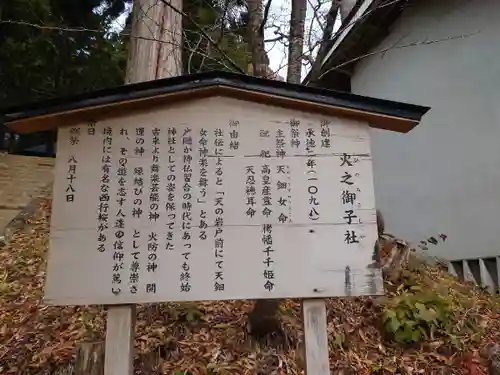 火之御子社
御創建
承徳二年(一〇九八)
御祭神
主祭神 天鈿女命
配祀 高皇産霊命 栲幡千千姫命
天忍穂耳命
御由緒
社伝によると「天の岩戸前にて天鈿
女命神楽を舞う」とある
戸隠が神仏習合の時代にあっても終始
神社としての姿を保ってきた
古来より舞楽芸能の神 火防の神 開
運の神 縁結びの神 として尊崇さ
れ、その道を志す人達の信仰が篤い
境内には有名な西行桜がある
祭日
八月十八日